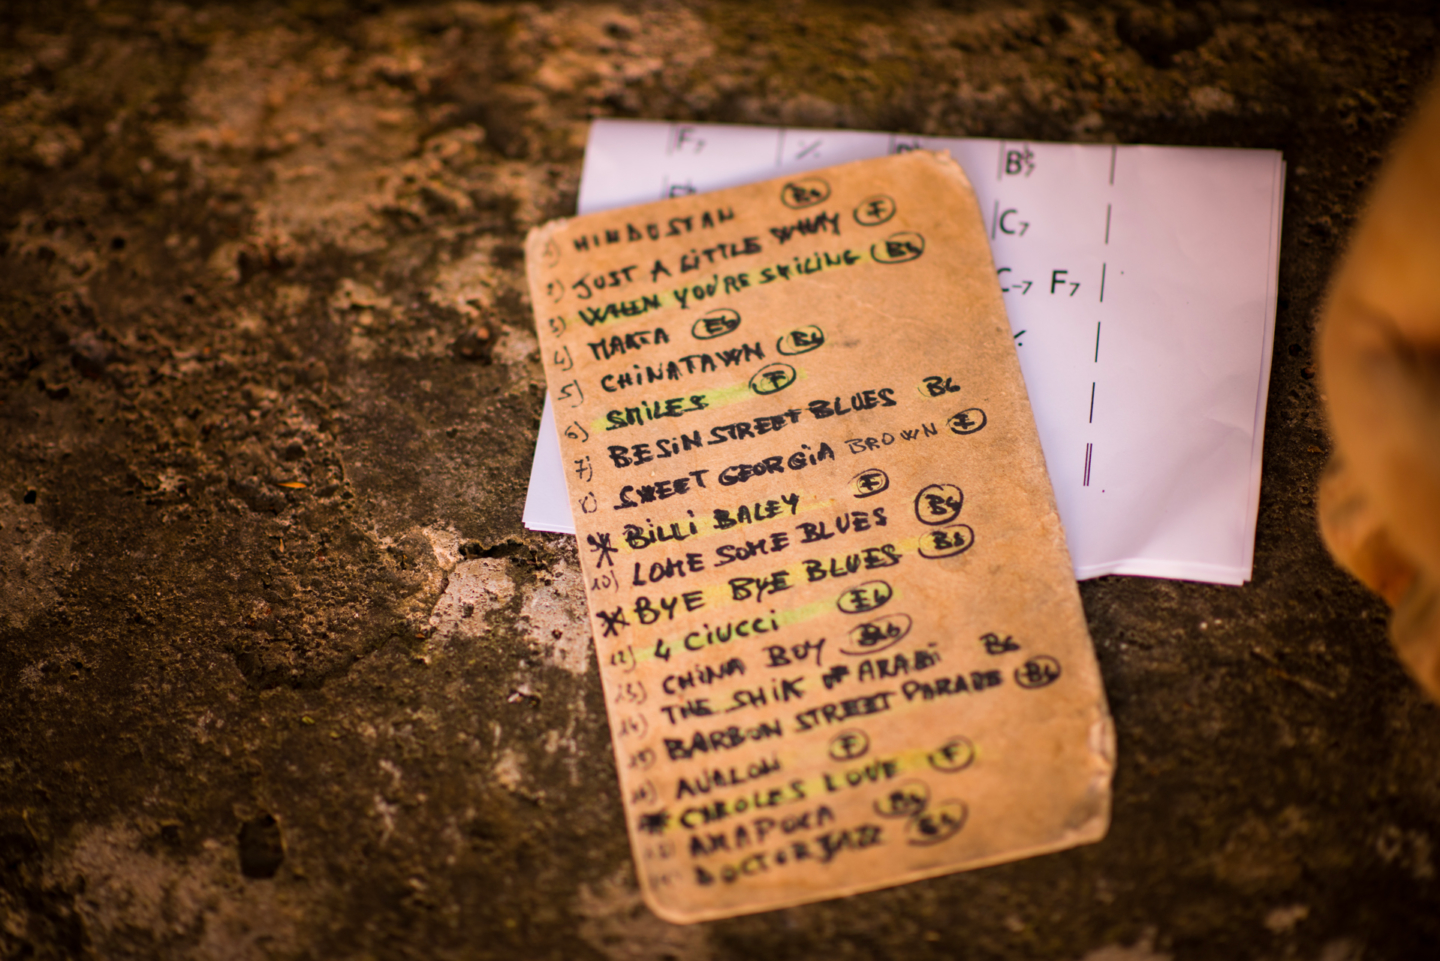 F7 | ٪ | B♭7
C7
C-7 F7 |
1) HINDUSTAN Bb
2) JUST A LITTLE WHAY F
3) WHEN YOU'RE SMILING Bb
4) MARTA Eb
5) CHINATAWN Bb
6) SMILES F
7) BESIN STREET BLUES Bb
8) SWEET GEORGIA BROWN F
* BILLI BALEY F
10) LONE SOME BLUES Bb
* BYE BYE BLUES Bb
12) 4 CIUCCI Eb
13) CHINA BOY Bb
14) THE SHIK OF ARABI Bb
15) BARBON STREET PARADE Bb
16) AVALON F
* CAROLES LOVE F
18) AMAPOLA Bb
DOCTOR JAZZ